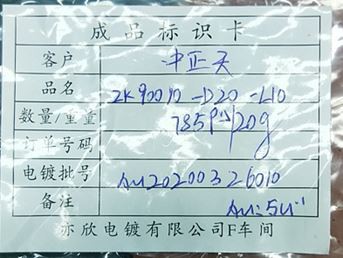 成品标识卡
客户 中正天
品名 ZK90010-D20-L10
数量/重量 785PCS/20g
订单号码
电镀批号 Au20200326010
备注 Au:5u"
亦欣电镀有限公司F车间